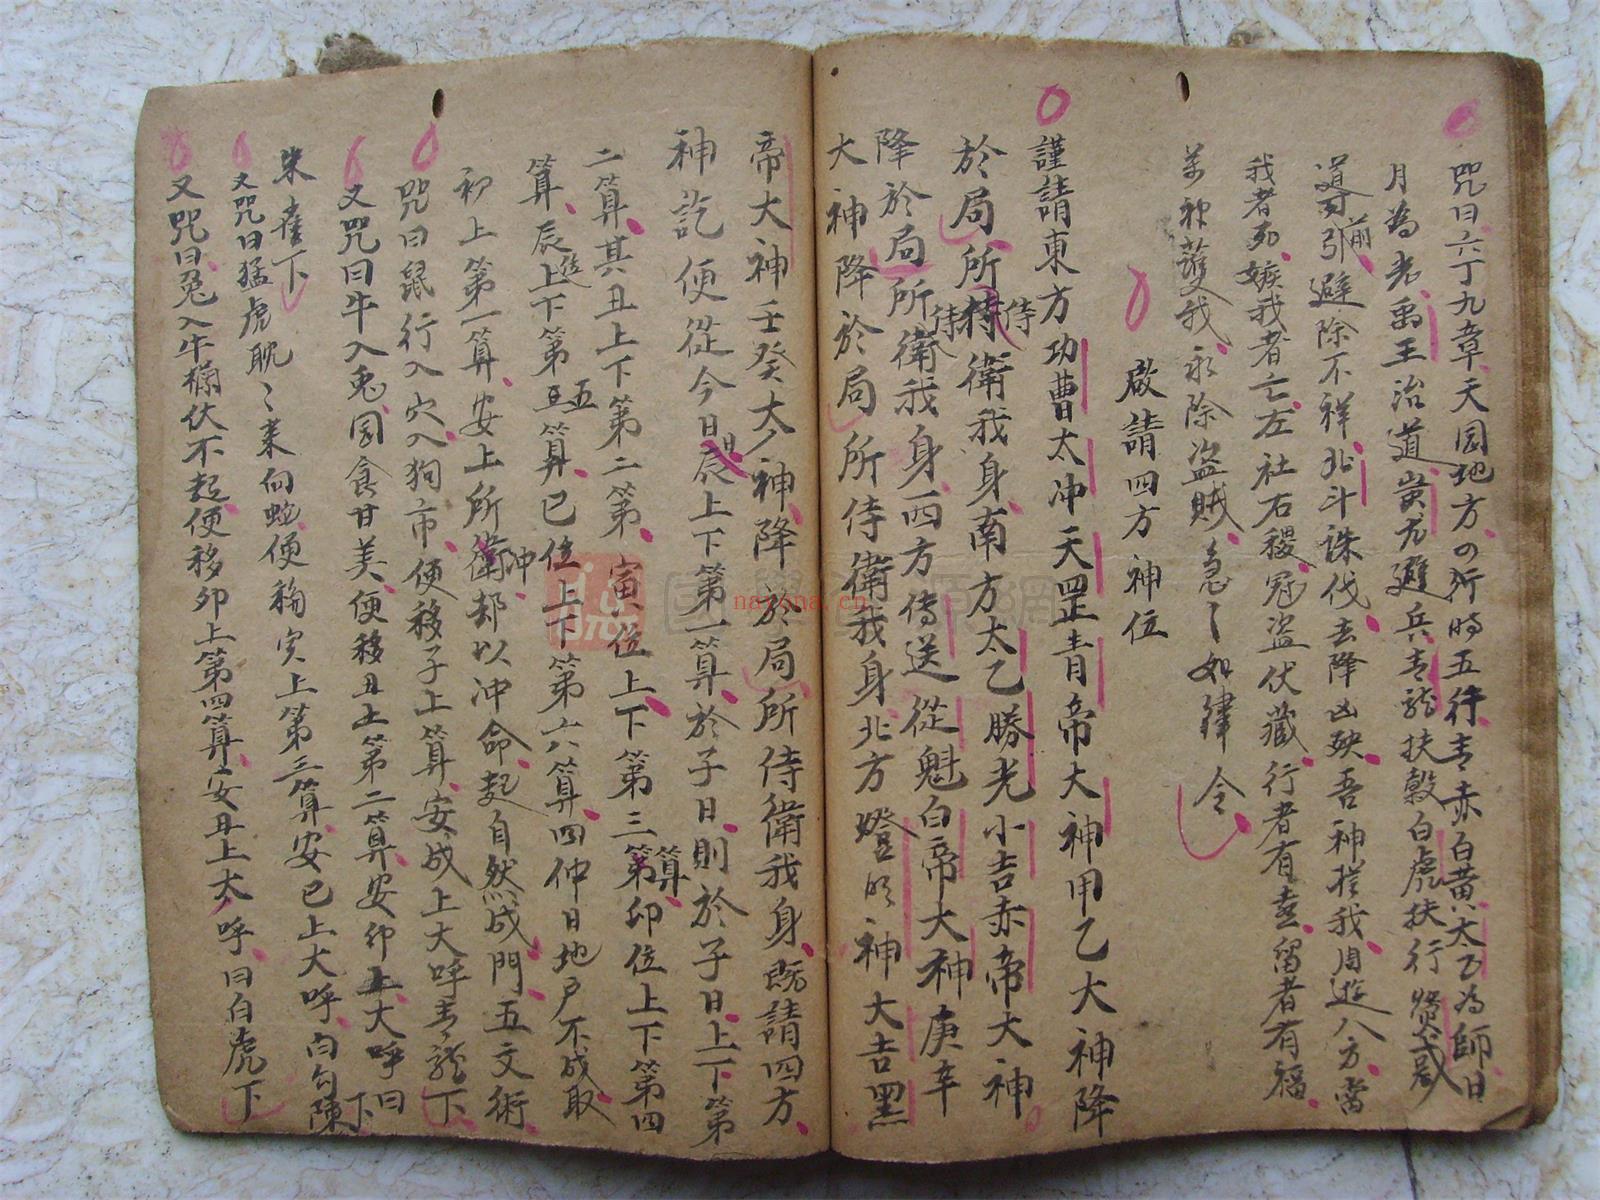 咒曰六丁九章天园地方四行時五行青赤白黄太乙為師日
月為光禹王治道蚩尤避兵青龍扶轂白虎扶行熒惑
導前引避除不祥北斗誅伐去降凶殃吾神挨我周遊八方當
我者死嫉我者亡左社右稷冠盜伏藏行者有喜留者有福
万神護我永除盜賊急〻如律令
啟請四方神位
謹請東方功曹太冲天罡青帝大神甲乙大神降
於局所侍衛我身南方太乙勝光小吉赤帝大神
降於局所侍衛我身西方傳送從魁白帝大神庚辛
大神降於局所侍衛我身北方登明神大吉黑
帝大神壬癸大神降於局所侍衛我身既請四方
神訖便從今日日辰上下第一算於子日則於子日上下第
二算其丑上下第二第寅位上下第三算卯位上下第四
算辰上下第五算巳位上下第六算四仲日地户不成取
初上第一算安上所衝却以冲命起自然成門五文術
咒曰鼠行入穴入狗市便移子上算安戍上大呼青龍下
又咒曰牛入兎园食甘美便移丑上第二算安卯上大呼曰
朱雀下
又咒曰猛虎耽〻来向蛇便移寅上第三算安巳上大呼白勾陳下
又咒曰兔入牛欄伏不起便移卯上第四算安丑上大呼曰白虎下
nayona.cn